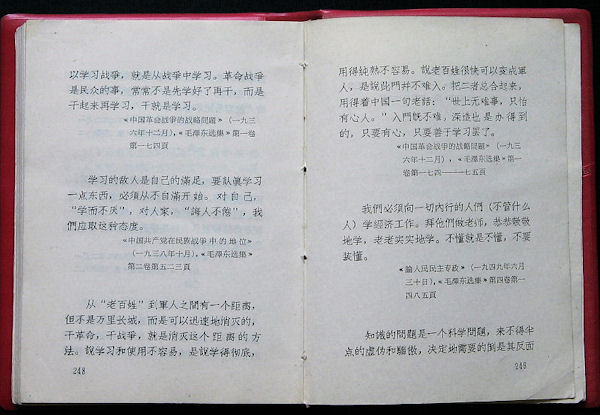 以学习战爭，就是从战爭中学习。革命战爭
是民众的事，常常不是先学好了再干，而是
干起来再学习，干就是学习。
《中国革命战爭的战略問題》（一九三
六年十二月），《毛澤东选集》第一卷
第一七四頁
学习的敌人是自己的滿足，要認眞学习
一点东西，必須从不自滿开始。对自己，
“学而不厌”，对人家，“誨人不倦”，我
們应取这种态度。
《中国共产党在民族战爭中的地位》
（一九三八年十月），《毛澤东选集》
第二卷第五二三頁
从“老百姓”到軍人之間有一个距离，
但不是万里长城，而是可以迅速地消灭的，
干革命，干战爭，就是消灭这个距离的方
法。說学习和使用不容易，是說学得彻底，
248
用得純熟不容易。說老百姓很快可以变成軍
人，是說此門幷不难入。把二者总合起来，
用得着中国一句老話：“世上无难事，只怕
有心人。”入門旣不难，深造也是办得到
的，只要有心，只要善于学习罢了。
《中国革命战爭的战略問題》（一九三
六年十二月），《毛澤东选集》第一
卷第一七四——一七五頁
我們必須向一切內行的人們（不管什么
人）学經济工作。拜他們做老师，恭恭敬敬
地学，老老实实地学。不懂就是不懂，不要
装懂。
《論人民民主专政》（一九四九年六月
三十日），《毛澤东选集》第四卷第一
四八五頁
知識的問題是一个科学問題，来不得半
点的虛伪和驕傲，决定地需要的倒是其反面
249